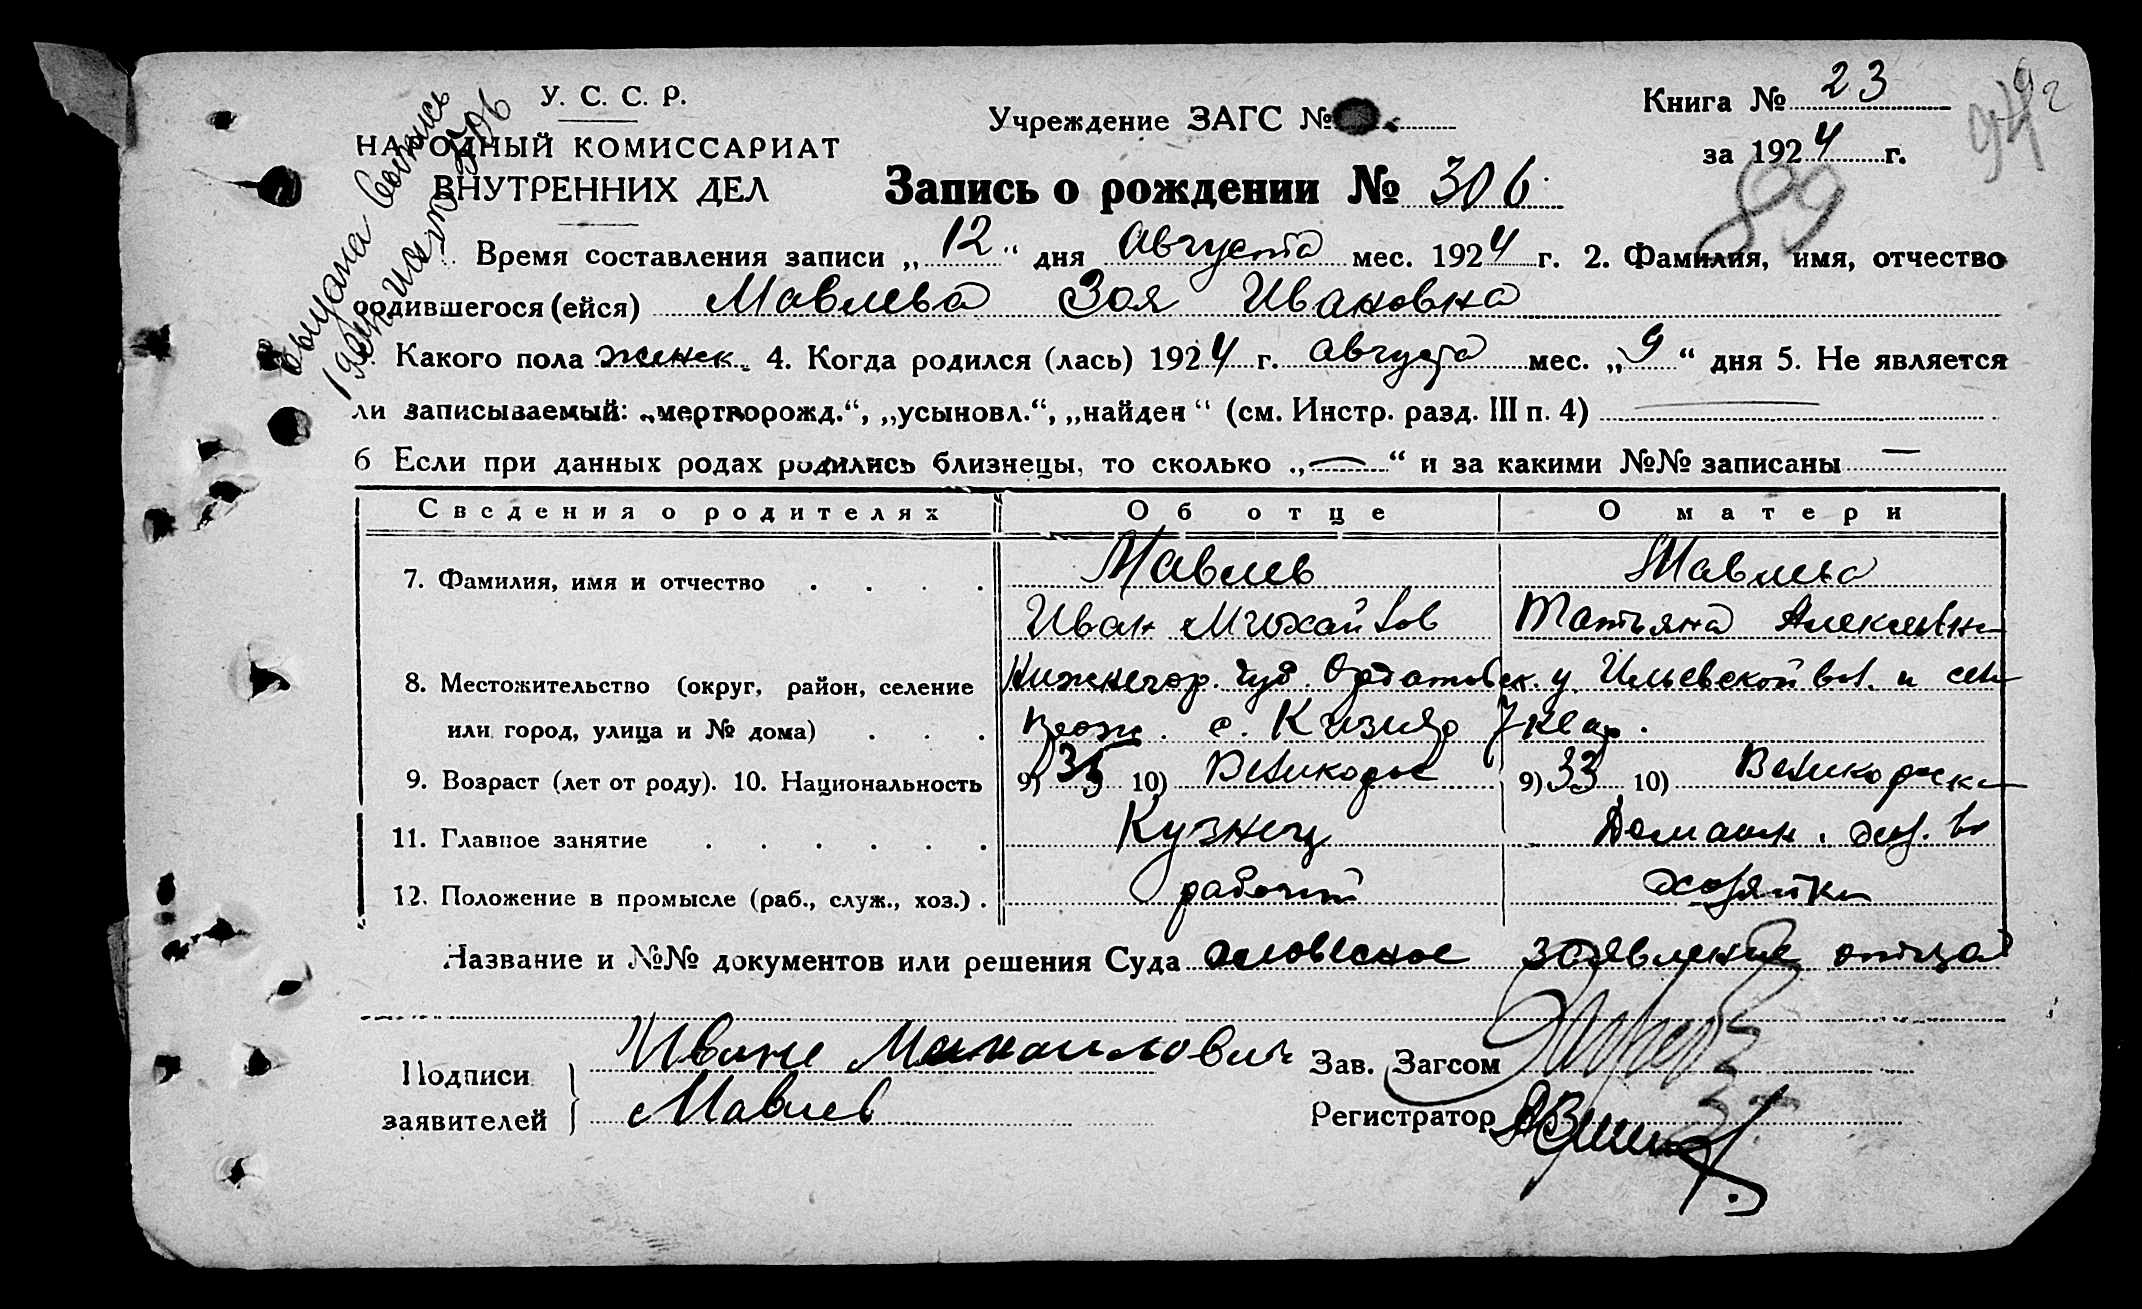 У. С. С. Р.
НАРОДНЫЙ КОМИССАРИАТ
ВНУТРЕННИХ ДЕЛ
Учреждение ЗАГС №
Книга № 23
за 1924 г.
Запись о рождении № 306
89
Время составления записи „12“ дня Августа мес. 1924 г. 2. Фамилия, имя, отчество
родившегося (ейся) Мавлева Зоя Ивановна
Какого пола женск. 4. Когда родился (лась) 1924 г. августа мес. „9“ дня 5. Не является
ли записываемый: „мертворожд.“, „усыновл.“, „найден“ (см. Инстр. разд. III п. 4) —
6 Если при данных родах родились близнецы, то сколько „—“ и за какими №№ записаны —
Сведения о родителях Об отце О матери
7. Фамилия, имя и отчество . . . . Мавлев Мавлева
Иван Михайлов Татьяна Алексеевна
8. Местожительство (округ, район, селение Нижегор. губ. Ардатовск. у. Ильевской вол. и
или город, улица и № дома) . . . с. Кизляр
9. Возраст (лет от роду). 10. Национальность 9) 35 10) Великорос 9) 33 10) Великоросска
11. Главное занятие . . . . . . Кузнец Домашн. хоз. во
12. Положение в промысле (раб., служ., хоз.) . рабочий хозяйка
Название и №№ документов или решения Суда словесное заявление отца
Подписи
заявителей
Иване Михаилович
Мавлев
Зав. Загсом
Регистратор